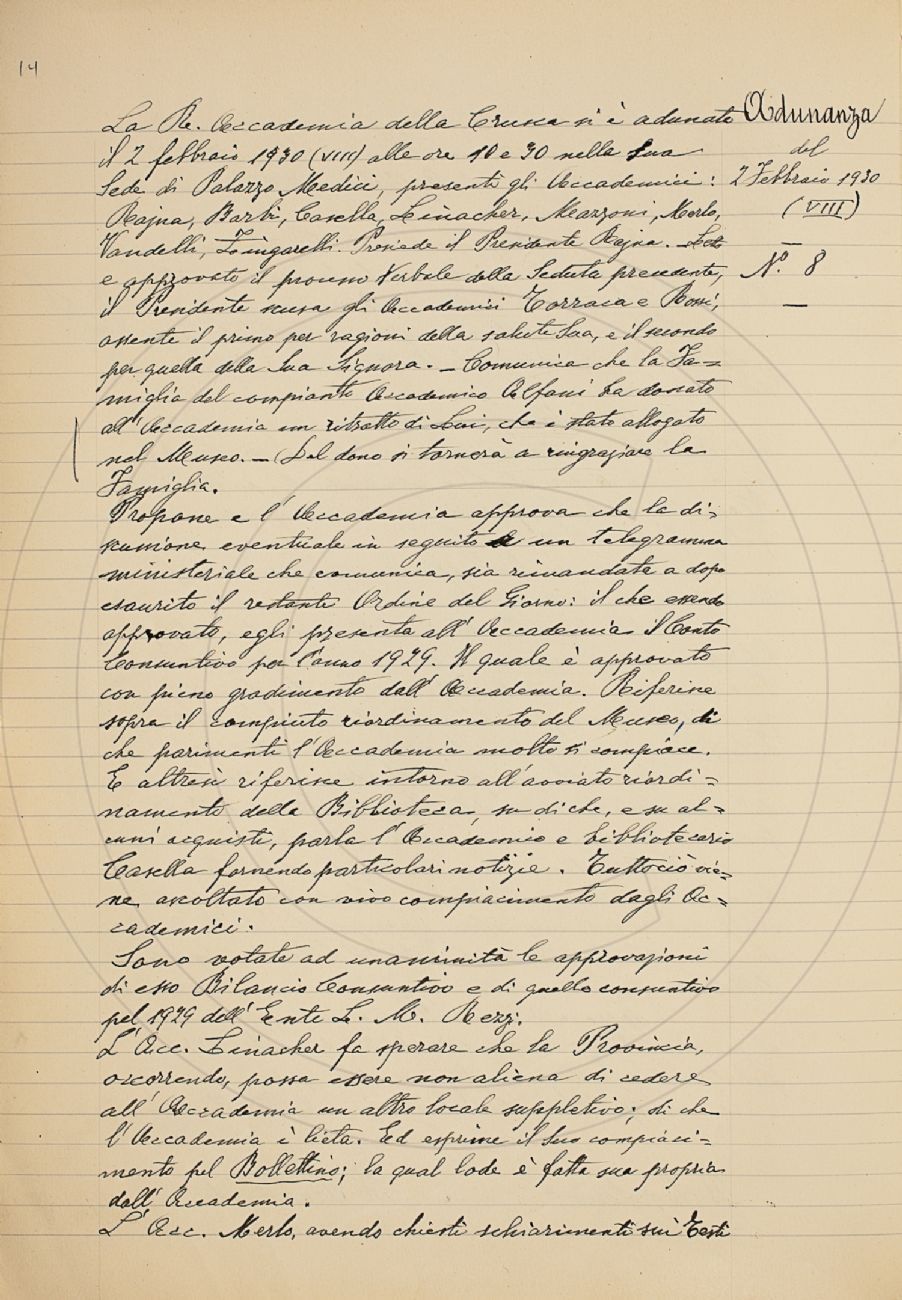 14
La R. Accademia della Crusca si è adunata
il 2 febbraio 1930 (VIII) alle ore 10 e 30 nella sua
Sede di Palazzo Medici, presenti gli Accademici:
Rajna, Barbi, Casella, Linacher, Mazzoni, Merlo,
Vandelli, Zingarelli. Presiede il Presidente Rajna. – Letto
e approvato il processo Verbale della Seduta precedente,
il Presidente scusa gli Accademici Torraca e Rossi,
assente il primo per ragioni della salute Sua, e il secondo
per quella della Sua Signora. – Comunica che la Fa-
miglia del compianto Accademico Alfani ha donato
all'Accademia un ritratto di Lui, che è stato allogato
nel Museo. – (Del dono si tornerà a ringraziare la
Famiglia.
Propone e l'Accademia approva che la di-
scussione eventuale in seguito a un telegramma
ministeriale che comunica, sia rimandata a dopo
esaurito il restante Ordine del Giorno: il che essendo
approvato, egli presenta all'Accademia il Conto
Consuntivo per l'anno 1929. Il quale è approvato
con pieno gradimento dall'Accademia. Riferisce
sopra il compiuto riordinamento del Museo, di
che parimenti l'Accademia molto si compiace.
E altresì riferisce intorno all'avviato riordi=
namento della Biblioteca, su di che, e su al=
cuni acquisti, parla l'Accademico e bibliotecario
Casella fornendo particolari notizie. Tuttociò vie=
ne ascoltato con vivo compiacimento dagli Ac=
cademici.
Sono votate ad unanimità le approvazioni
di esso Bilancio Consuntivo e di quello consuntivo
pel 1929 dell'Ente L. M. Rezzi.
L'Acc. Linacher fa sperare che la Provincia,
occorrendo, possa essere non aliena di cedere
all'Accademia un altro locale suppletivo; di che
l'Accademia è lieta. Ed esprime il suo compiaci=
mento pel Bollettino; la qual lode è fatta sua propria
dall'Accademia.
L'Acc. Merlo, avendo chiesti schiarimenti sui Testi
Adunanza
del
2 Febbraio 1930
(VIII)
–
N.º 8
–